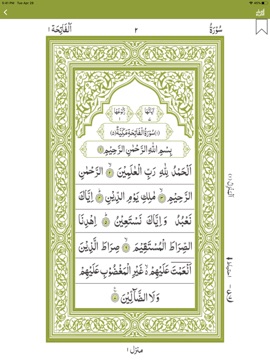 اَلْفَاتِحَة ١
٢
سُوْرَةُ
اٰيَاتُهَا
رُكُوْعُهَا
سُوْرَةُ الْفَاتِحَةِ مَكِّيَّةٌ
بِسْمِ اللّٰهِ الرَّحْمٰنِ الرَّحِيْمِ
اَلْحَمْدُ لِلّٰهِ رَبِّ الْعٰلَمِيْنَ ۙ الرَّحْمٰنِ
الرَّحِيْمِ ۙ مٰلِكِ يَوْمِ الدِّيْنِ ؕ اِيَّاكَ
نَعْبُدُ وَ اِيَّاكَ نَسْتَعِيْنُ ؕ اِهْدِنَا
الصِّرَاطَ الْمُسْتَقِيْمَ ۙ صِرَاطَ الَّذِيْنَ
اَنْعَمْتَ عَلَيْهِمْ ۙ غَيْرِ الْمَغْضُوْبِ عَلَيْهِمْ
وَ لَا الضَّآلِّيْنَ
منزل ١